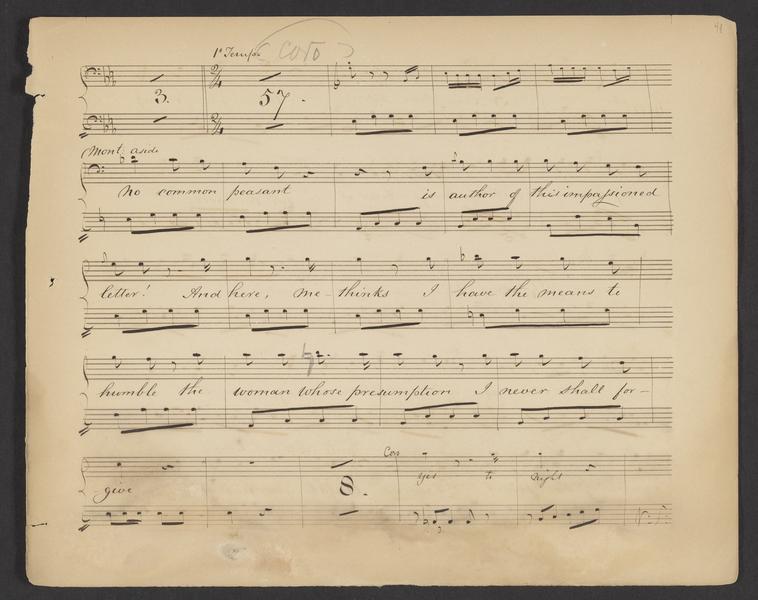 41
1º Tempo Coro
3. 57.
Mont: aside
No common peasant is author of this impassioned
letter! And here, me-thinks I have the means to
humble the woman whose presumption I never shall for-
give 8. Con yes to night